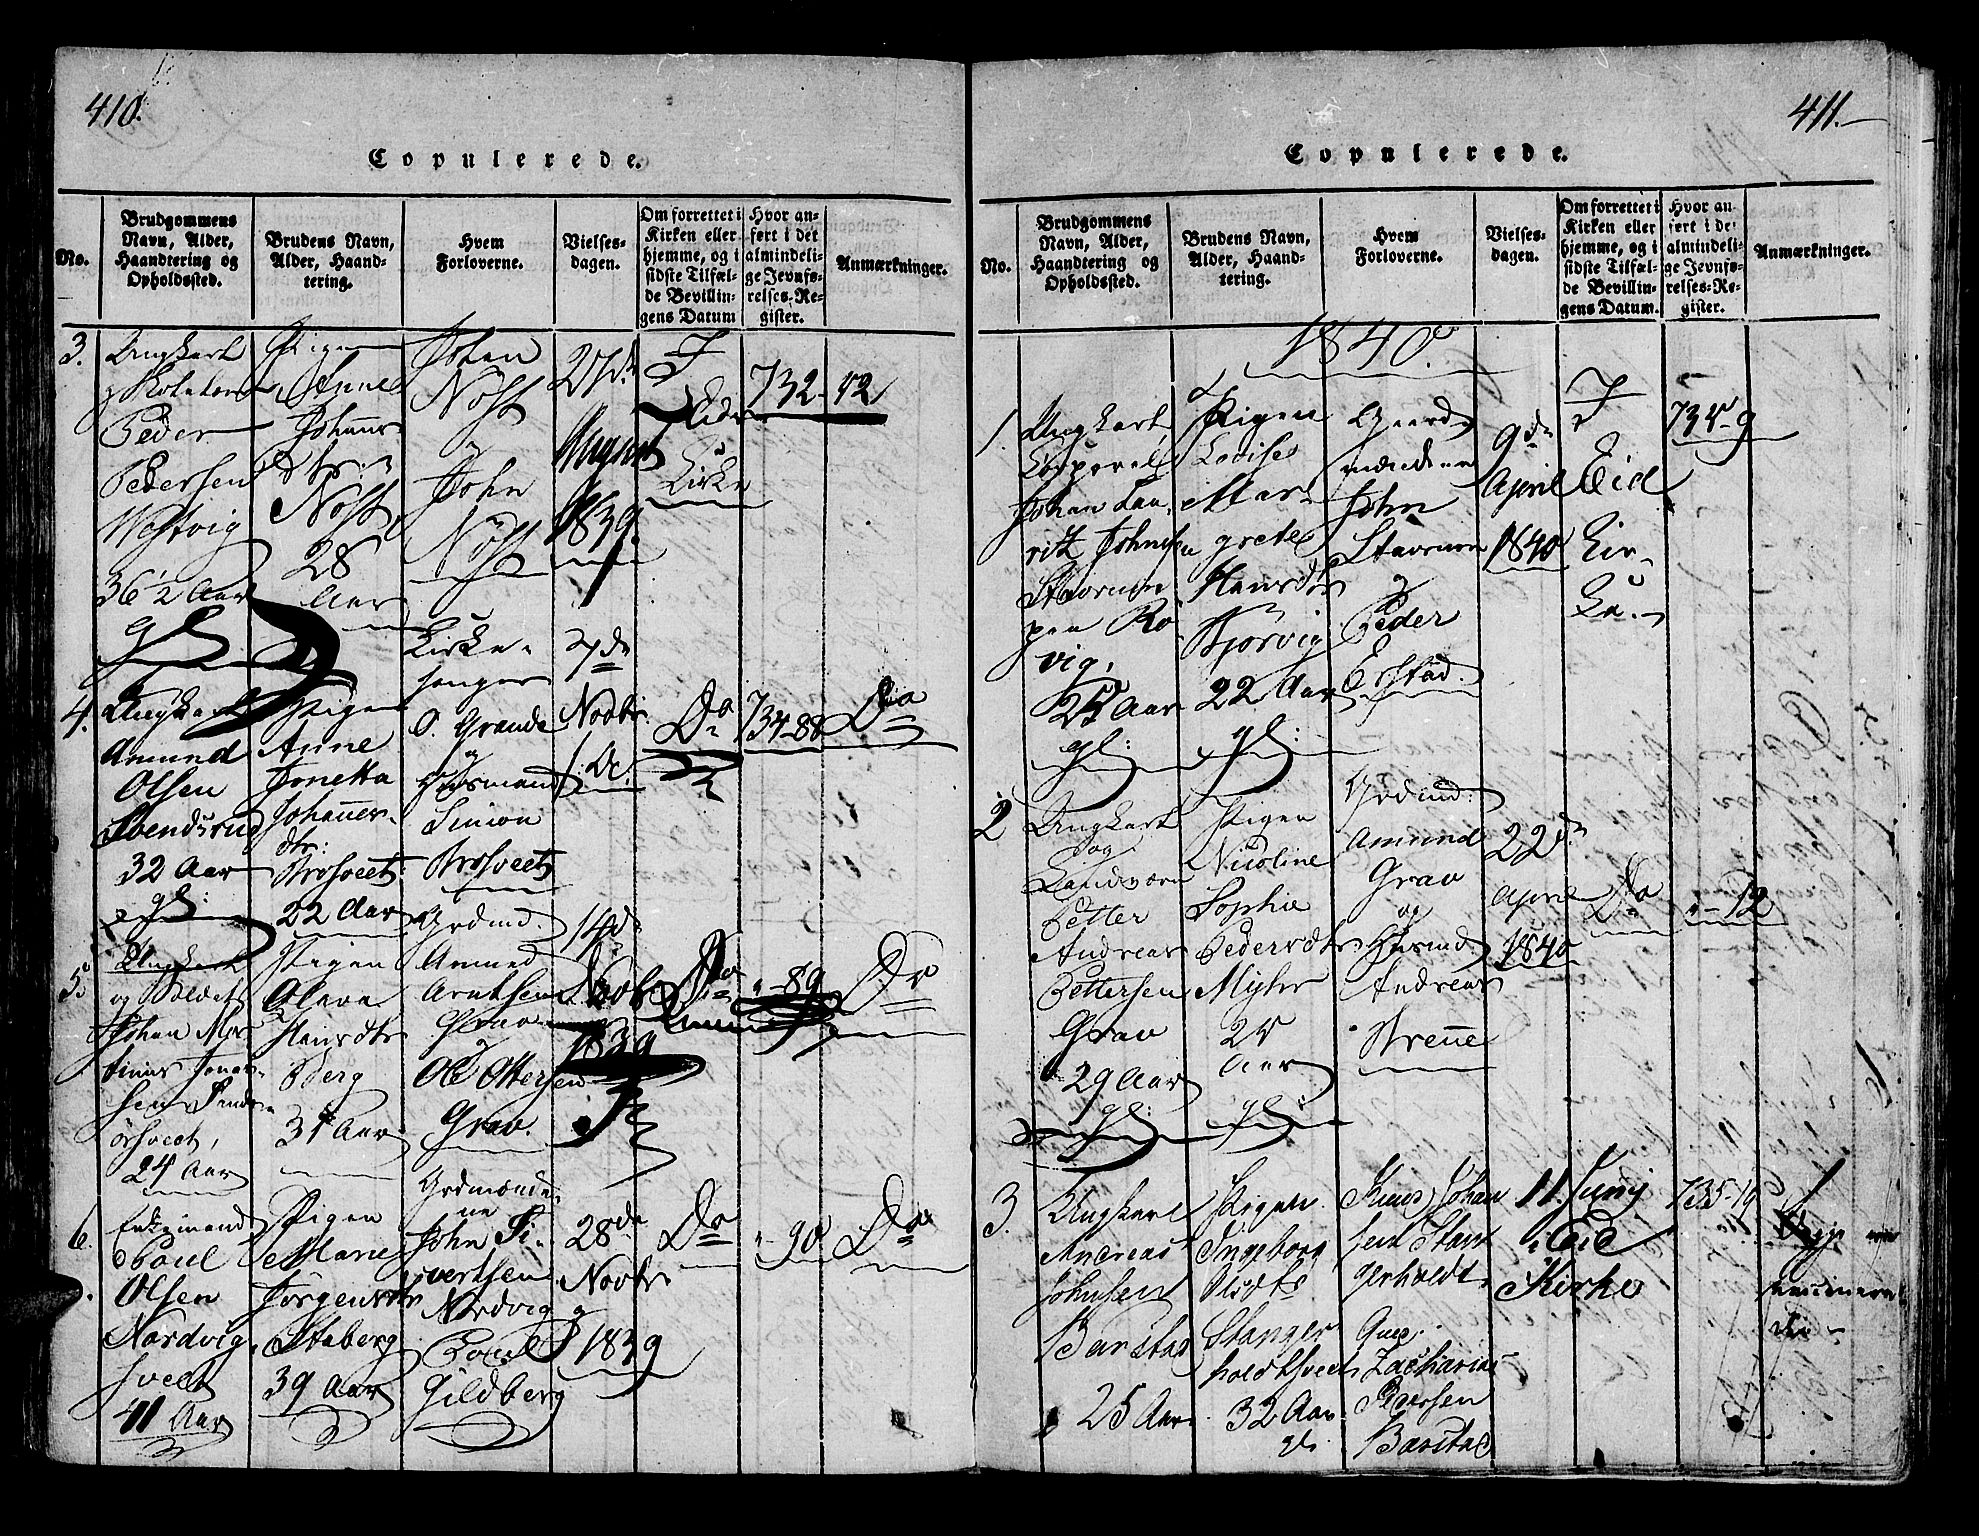 410.
Copulerede.
No.
Brudgommens
Navn, Alder,
Haandtering og
Opholdssted.
Brudens Navn,
Alder, Haand-
tering.
Hvem
Forloverne.
Vielses-
dagen.
Om forrettet i
Kirken eller
hjemme, og i
sidste Tilfæl-
de Bevillin-
gens Datum
Hvor an-
ført i det
almindeli-
ge Jevnfø-
relses-Re-
gister.
Anmærkninger.
3.
Ungkarl
Peder
Pedersen
Westvig
36 1/2 Aar
gl:
Pigen
Anne
Johans-
dtr:
Nost
28
Aar
Johan
Nöst
og
John
Nöst
27de
August
1839.
I
Eids
Kirke
732-42
4.
Ungkarl
Amund
Olsen
Svendsrud
32 Aar
gl:
Pigen
Anne
Jonetta
Johanes-
dtr:
Brosveet
22 Aar
Kirke-
sanger
O. Grande
og
Huusmand
Simon
Brosveet
7de
Novbr.
Do
734-88
Do
5.
Ungkarl
og Soldat
Johan Mar-
tinus Jonas-
sen
24 Aar
Pigen
Olava
Hansdtr
Berg
31 Aar
Grdmd.
Amund
Arntsen
Grav
og
Ole Ottersen
Grav.
14de
Novbr
1839
Do
"-89
Do
6.
Enkemand
Poul
Olsen
Nordvig
sveet
41 Aar
Pigen
Marie
Jörgensdtr
Staberg
39 Aar
Grdmænde-
ne
John Si-
vertsen
Nordvig
og
Poul
Gildberg
28de
Novbr
1839
Do
"-90
Do
411.-
Copulerede.
No.
Brudgommens
Navn, Alder,
Haandtering og
Opholdssted.
Brudens Navn,
Alder, Haand-
tering.
Hvem
Forloverne.
Vielses-
dagen.
Om forrettet i
Kirken eller
hjemme, og i
sidste Tilfæl-
de Bevillin-
gens Datum.
Hvor an-
ført i det
almindeli-
ge Jevnfø-
relses-Re-
gister.
Anmærkninger.
1840.
1.
Ungkarl,
Corporal
Johan Lau-
ritz Johnsen
Stavrum
paa Rö-
vig,
25 Aar
gl:
Pigen
Lovise
Mar-
grete
Hansdtr
Kjorvig
22 Aar
gl:
Gaard-
mændene
John
Stavrum
og
Peder
Erstad.
9de
April
1840
I
Eid
Kir-
ke.-
735-9
2
Ungkarl
og
Landværn
Petter
Andreas
Pettersen
Grav
29 Aar
gl:
Pigen
Nicoline
Sophie
Pedersdtr
Myhr
25
Aar
gl:
Grdmd:
Amund
Grav
og
Huusmd.
Andreas
Brenne
22de
April
1840
Do
"-12
3.
Ungkarl
Andreas
Johnsen
Barstad
25 Aar
Pigen
Ingeborg
Olsdtr
Stanger
holdtsveet
32 Aar
gl.
Knud Johan
sen Stan
gerholdt
og
Zacharias
Iversen
Barstad
11. Junij
i Eid
Kirke
735-19
Begge